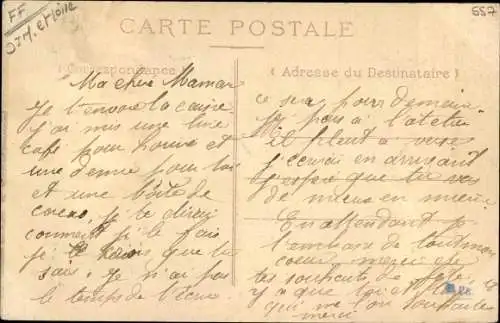 FF
557
CARTE POSTALE
Correspondance
( Adresse du Destinataire )
Ma chere Maman
Je t'envoie la caisse
j'ai mis une livre
café pour nous et
une demie pour toi
et une boîte de
cacao, je te dirai
comment je le fais
si je que tu
sais. Je n'ai pas
le temps de l'écrire
ce sera pour demain
je pars à l'atelier
il pleut a verse
j'écrirai en arrivant
j'espere que tu vas
de mieux en mieux
En attendant je
t'embrasse de tout mon
coeur merci de
tes souhaits de fete
y a que toi et
qui me l'on souhaitée
merci